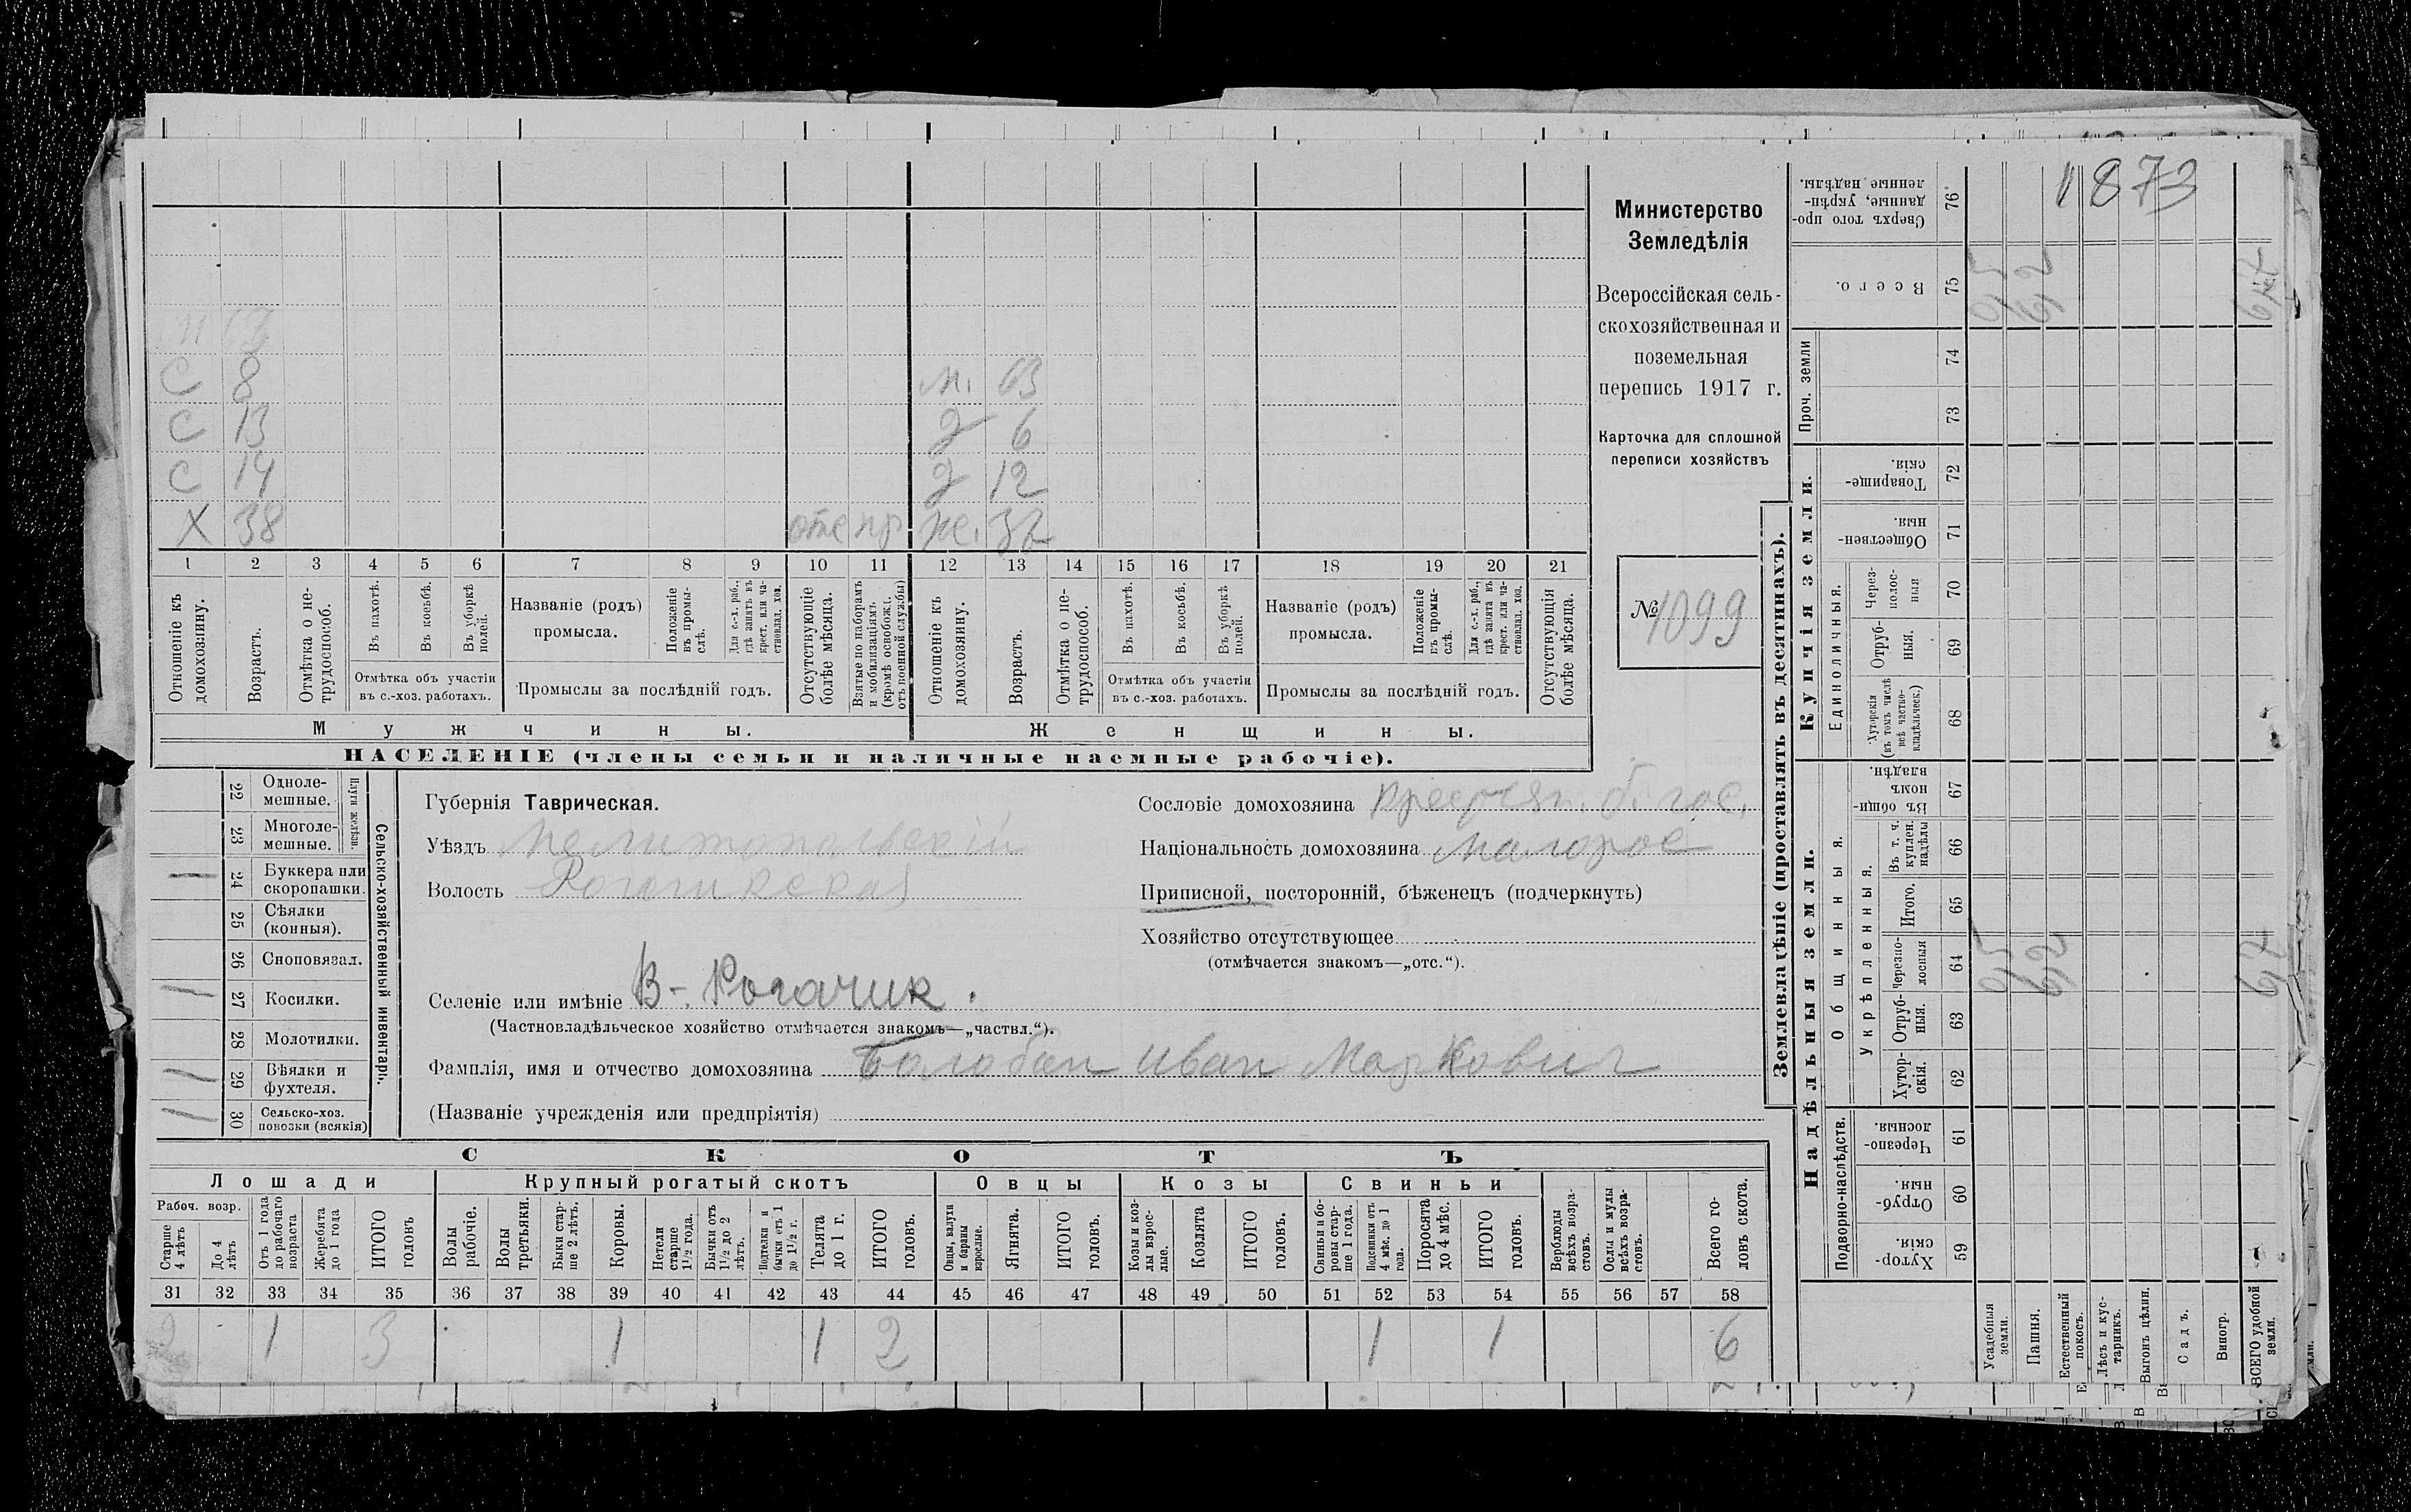 1873
Министерство
Земледѣлія
Всероссійская сель-
скохозяйственная и
поземельная
перепись 1917 г.
Карточка для сплошной
переписи хозяйствъ
№ 1099
С 8 м. 63
С 13 д 6
С 14 д 12
Х 38 же.
1 2 3 4 5 6 7 8 9 10 11 12 13 14 15 16 17 18 19 20 21
Отношеніе къ домохозяину.
Возрастъ.
Отмѣтка о не-трудоспособ.
Въ пахотѣ.
Въ косьбѣ.
Въ уборкѣ полей.
Отмѣтка объ участіи
въ с.-хоз. работахъ.
Названіе (родъ)
промысла.
Положеніе въ промы-слѣ.
Для с.-х. раб., гдѣ занятъ въ крест. или ча-стновлад. хоз.
Промыслы за послѣдній годъ.
Отсутствующіе болѣе мѣсяца.
Взятые по наборамъ и мобилизаціямъ (кромѣ освобожд. отъ военной службы)
Отношеніе къ домохозяину.
Возрастъ.
Отмѣтка о не-трудоспособ.
Въ пахотѣ.
Въ косьбѣ.
Въ уборкѣ полей.
Отмѣтка объ участіи
въ с.-хоз. работахъ.
Названіе (родъ)
промысла.
Положеніе въ промы-слѣ.
Для с.-х. раб., гдѣ занята въ крест. или ча-стновлад. хоз.
Промыслы за послѣдній годъ.
Отсутствующія болѣе мѣсяца.
Мужчины. Женщины.
НАСЕЛЕНІЕ (члены семьи и наличные наемные рабочіе).
22 Одноле-мешные.
23 Многоле-мешные.
Плуги желѣзн.
24 Буккера или скоропашки. 1
25 Сѣялки (конныя).
26 Сноповязал.
27 Косилки. 1
28 Молотилки.
29 Вѣялки и фухтеля. 1
30 Сельско-хоз. повозки (всякія) 1
Сельско-хозяйственный инвентарь.
Губернія Таврическая.
Уѣздъ Мелитопольскій
Волость Рогачикская
Селеніе или имѣніе В-Рогачик.
(Частновладѣльческое хозяйство отмѣчается знакомъ—„частвл.“).
Фамилія, имя и отчество домохозяина Балобан Иван Маркович
(Названіе учрежденія или предпріятія)
Сословіе домохозяина
Національность домохозяина малорос
Приписной, посторонній, бѣженецъ (подчеркнуть)
Хозяйство отсутствующее
(отмѣчается знакомъ—„отс.“).
СКОТЪ
Лошади Крупный рогатый скотъ Овцы Козы Свиньи
Рабоч. возр.
Старше 4 лѣтъ
До 4 лѣтъ
Отъ 1 года до рабочаго возраста
Жеребята до 1 года
ИТОГО головъ
Волы рабочіе.
Волы третьяки.
Быки стар-ше 2 лѣтъ.
Коровы.
Нетели старше 1½ года.
Бычки отъ 1½ до 2 лѣтъ.
Подтелки и бычки отъ 1 до 1½ г.
Телята до 1 г.
ИТОГО головъ.
Овцы, валухи и бараны взрослые.
Ягнята.
ИТОГО головъ.
Козы и коз-лы взрос-лые.
Козлята
ИТОГО головъ.
Свиньи и бо-ровы стар-ше 1 года.
Подсвинки отъ 4 мѣс. до 1 года.
Поросята до 4 мѣс.
ИТОГО головъ.
Верблюды всѣхъ возра-стовъ.
Ослы и мулы всѣхъ возра-стовъ.
Всего го-ловъ скота.
31 32 33 34 35 36 37 38 39 40 41 42 43 44 45 46 47 48 49 50 51 52 53 54 55 56 57 58
2 1 3 1 1 2 1 1 6
Землевладѣніе (проставлять въ десятинахъ).
Купчія земли.
Надѣльныя земли.
Сверхъ того про-данные, укрѣп-ленные надѣлы. 76
Всего. 75
Проч. земли 74 73
Товарище-скія. 72
Обществен-ныя. 71
Единоличныя.
Через-полос-ныя 70
Отруб-ныя. 69
Хуторскія (въ томъ числѣ всѣ частно-владѣльческ.) 68
Общинныя.
Въ общи-номъ владѣн. 67
Укрѣпленныя.
Въ т. ч. куплен. надѣлы 66
Итого. 65
Черезпо-лосныя 64
Отруб-ныя. 63
Хутор-скія. 62
Подворно-наслѣдств.
Черезпо-лосныя. 61
Отруб-ныя. 60
Хутор-скія. 59
Усадебныя земли.
Пашня.
Естественный покосъ.
Лѣсъ и кус-тарникъ.
Выгонъ цѣлин.
Садъ.
Виногр.
ВСЕГО удобной земли.